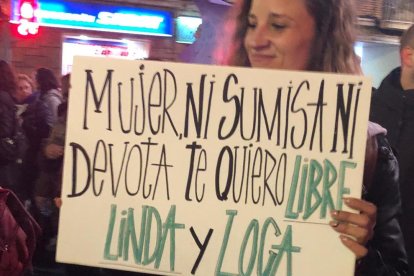 MUJER, NI SUMISA NI
DEVOTA TE QUIERO LIBRE
LINDA Y LOCA